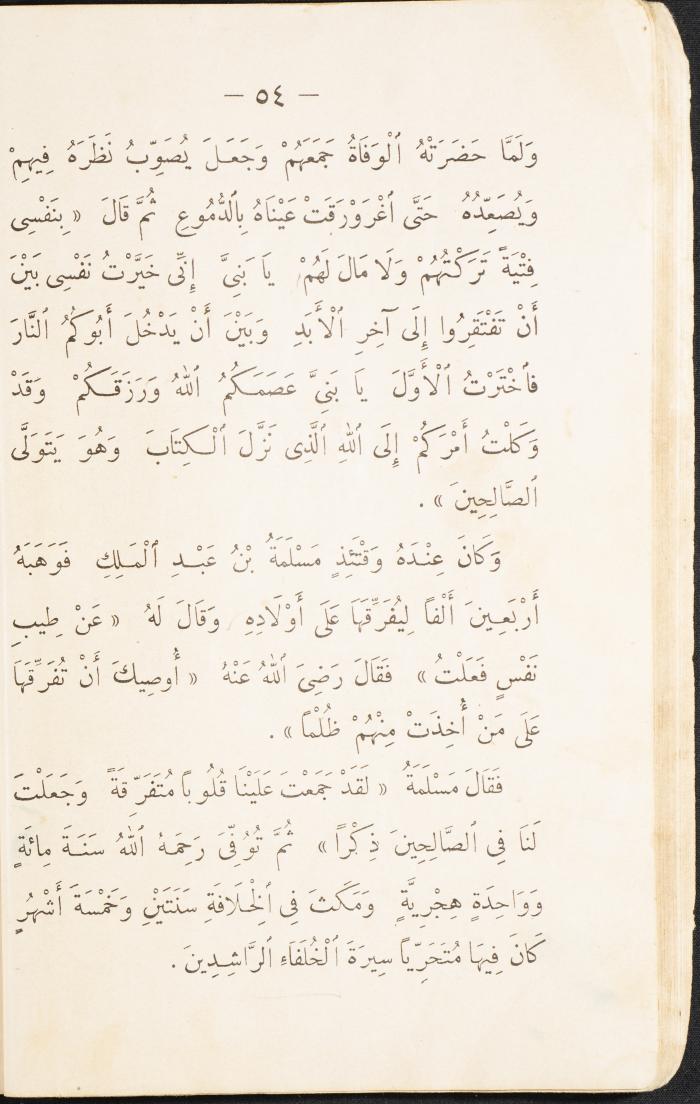 — ٥٤ —
وَلَمَّا حَضَرَتْهُ ٱلْوَفَاةُ جَمَعَهُمْ وَجَعَلَ يُصَوِّبُ نَظَرَهُ فِيهِمْ
وَيُصَعِّدُهُ حَتَّى ٱغْرَوْرَقَتْ عَيْنَاهُ بِٱلدُّمُوعِ ثُمَّ قَالَ « بِنَفْسِى
فِتْيَةً تَرَكْتُهُمْ وَلَا مَالَ لَهُمْ يَا بَنِيَّ إِنِّى خَيَّرْتُ نَفْسِى بَيْنَ
أَنْ تَفْتَقِرُوا إِلَى آخِرِ ٱلْأَبَدِ وَبَيْنَ أَنْ يَدْخُلَ أَبُوكُمُ ٱلنَّارَ
فَٱخْتَرْتُ ٱلْأَوَّلَ يَا بَنِيَّ عَصَمَكُمُ ٱللهُ وَرَزَقَكُمْ وَقَدْ
وَكَلْتُ أَمْرَكُمْ إِلَى ٱللهِ ٱلَّذِى نَزَّلَ ٱلْكِتَابَ وَهُوَ يَتَوَلَّى
ٱلصَّالِحِينَ » .
وَكَانَ عِنْدَهُ وَقْتَئِذٍ مَسْلَمَةُ بْنُ عَبْدِ ٱلْمَلِكِ فَوَهَبَهُ
أَرْبَعِينَ أَلْفاً لِيُفَرِّقَهَا عَلَى أَوْلَادِهِ وَقَالَ لَهُ « عَنْ طِيبِ
نَفْسٍ فَعَلْتُ » فَقَالَ رَضِىَ ٱللهُ عَنْهُ « أُوصِيكَ أَنْ تُفَرِّقَهَا
عَلَى مَنْ أُخِذَتْ مِنْهُمْ ظُلْمًا » .
فَقَالَ مَسْلَمَةُ « لَقَدْ جَمَعْتَ عَلَيْنَا قُلُوباً مُتَفَرِّقَةً وَجَعَلْتَ
لَنَا فِى ٱلصَّالِحِينَ ذِكْرًا » ثُمَّ تُوُفِّىَ رَحِمَهُ ٱللهُ سَنَةَ مِائَةٍ
وَوَاحِدَةٍ هِجْرِيَّةٍ وَمَكَثَ فِى ٱلْخِلَافَةِ سَنَتَيْنِ وَخَمْسَةَ أَشْهُرٍ
كَانَ فِيهَا مُتَحَرِّياً سِيرَةَ ٱلْخُلَفَاءِ ٱلرَّاشِدِينَ .